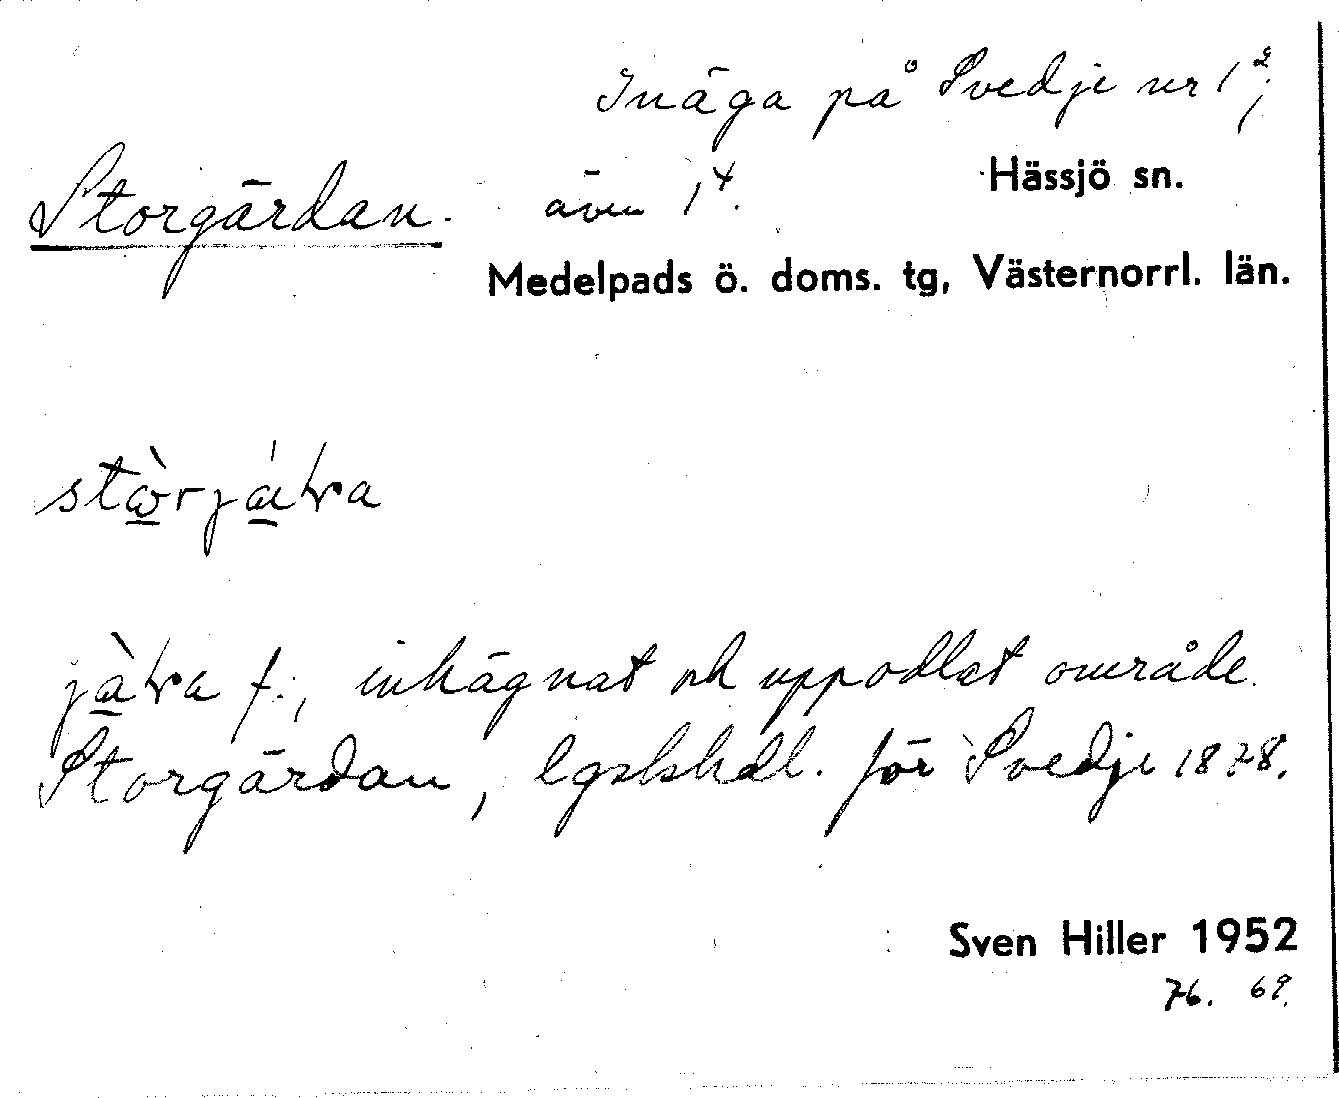 Inäga på Svedje nr 1²;
Storgärdan. även 1⁴. Hässjö sn.
Medelpads ö. doms. tg, Västernorrl. län.
f., inhägnat och uppodlat område.
Storgärdan, lgskshdl. för Svedje 1878.
Sven Hiller 1952
76. 69.